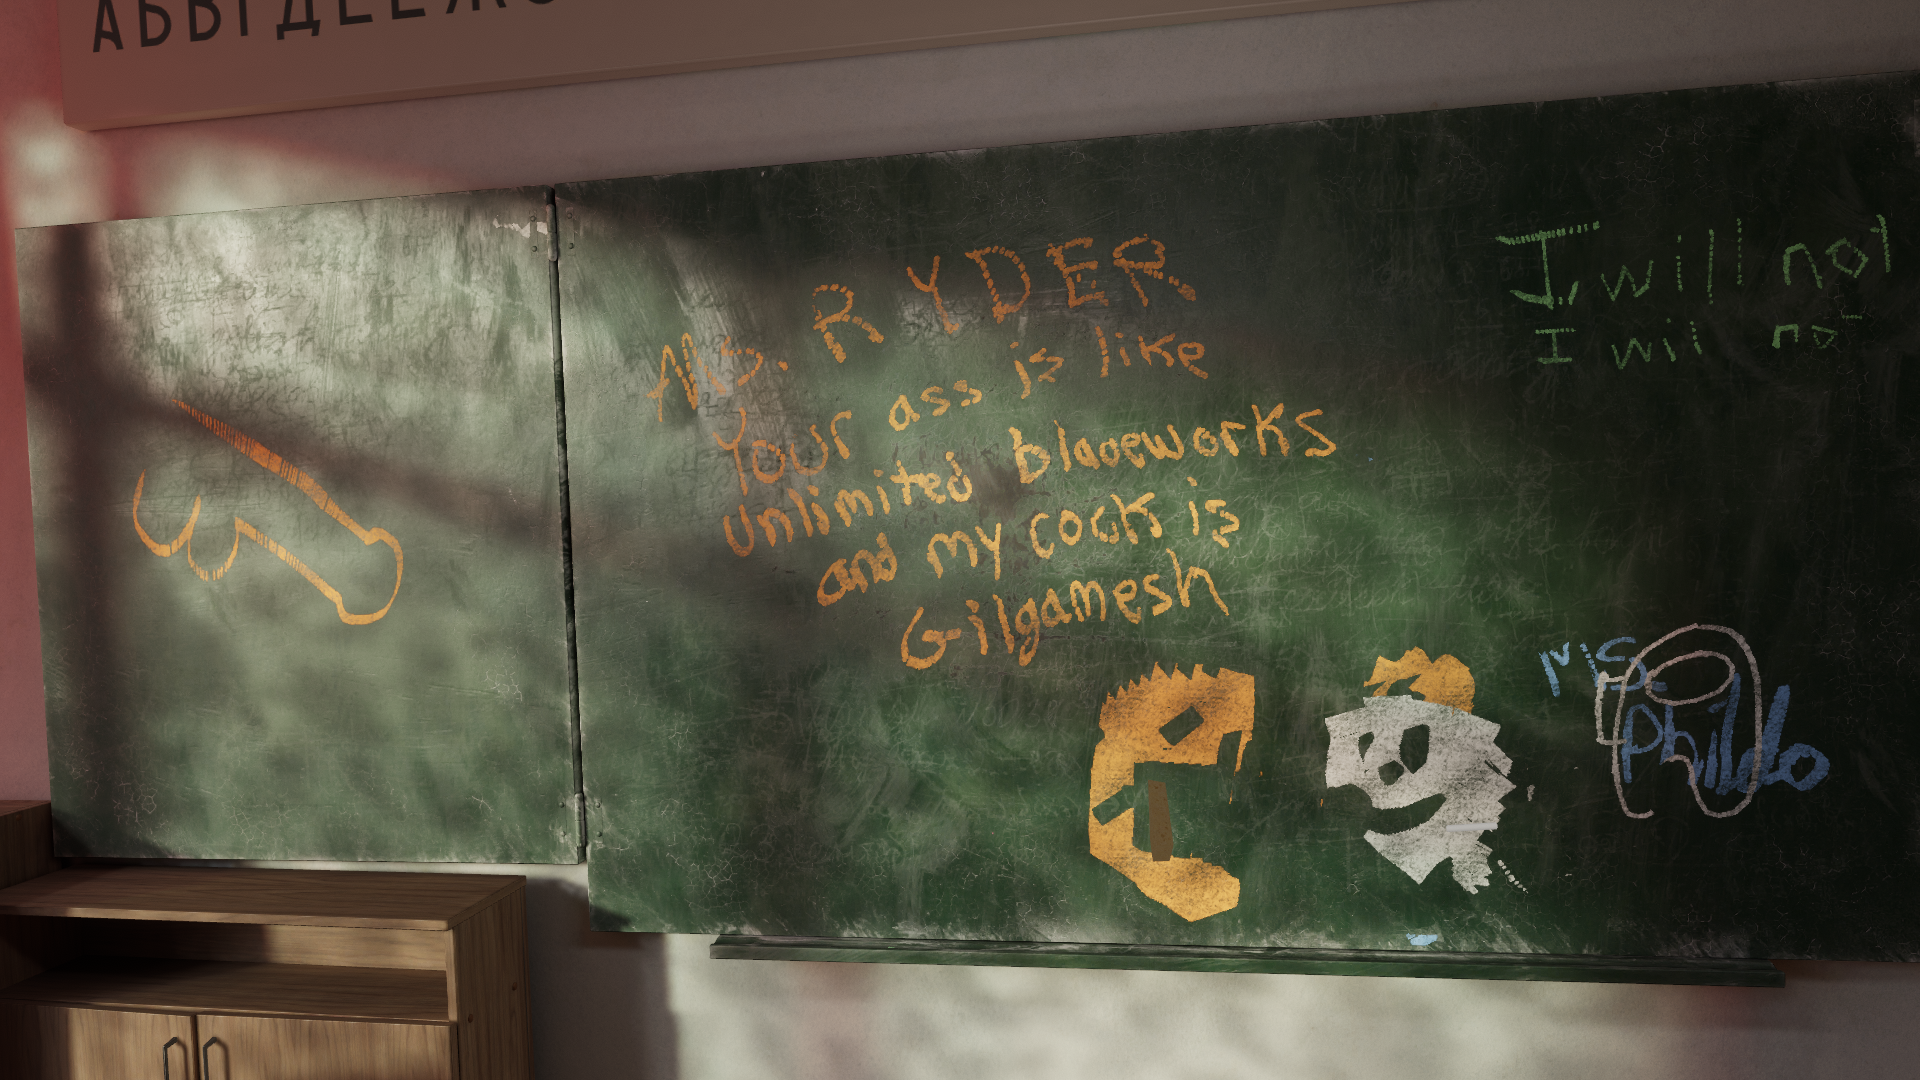 АБВГДЕЁЖЗ
Ms. RYDER
Your ass is like
unlimited bladeworks
and my cock is
Gilgamesh
I will not
I will not
Ms.
Phildo